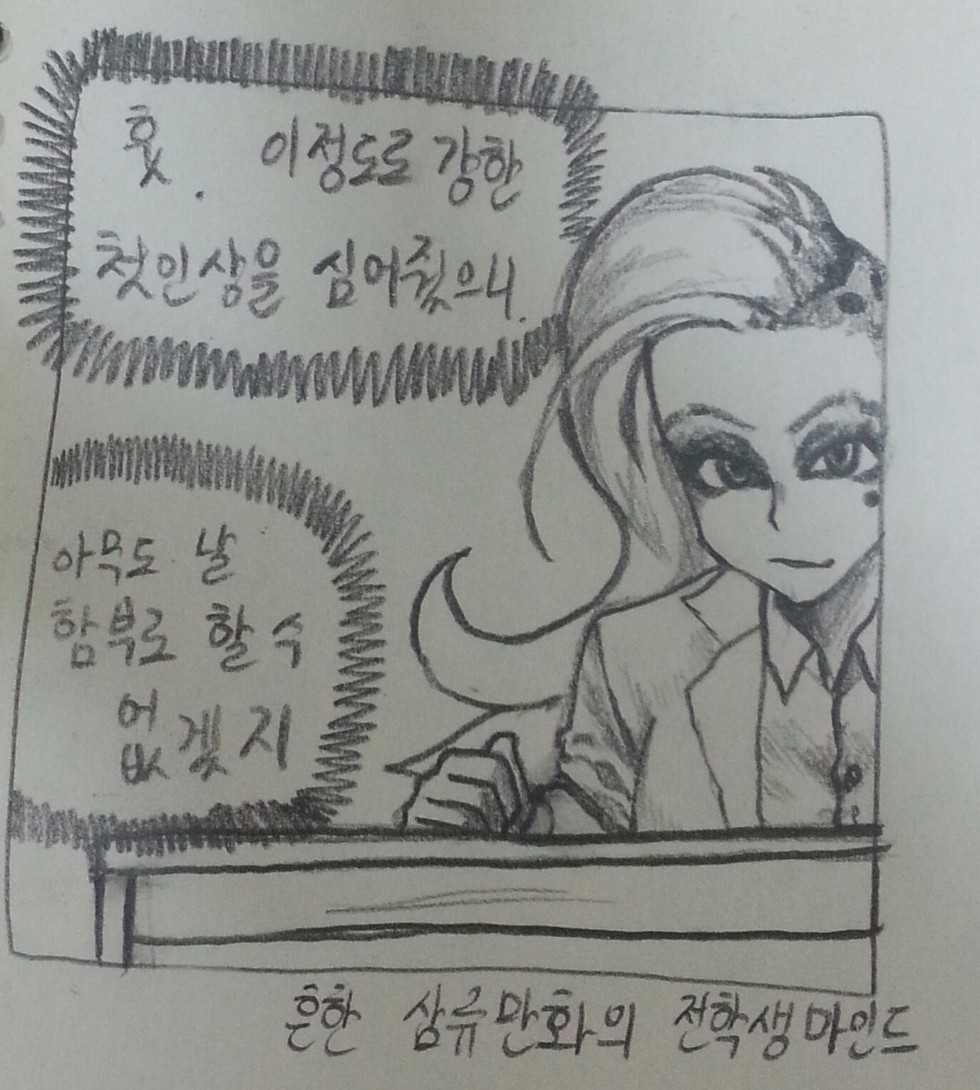 훗. 이정도로 강한
첫인상을 심어줬으니.
아무도 날
함부로 할 수
없겠지
흔한 삼류만화의 전학생마인드